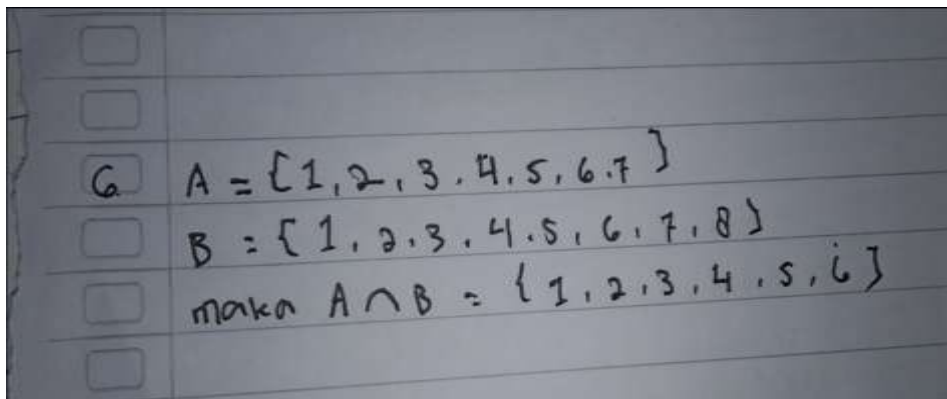 6. A = {1, 2, 3, 4, 5, 6, 7}
B = {1, 2, 3, 4, 5, 6, 7, 8}
maka A ∩ B = {1, 2, 3, 4, 5, 6}